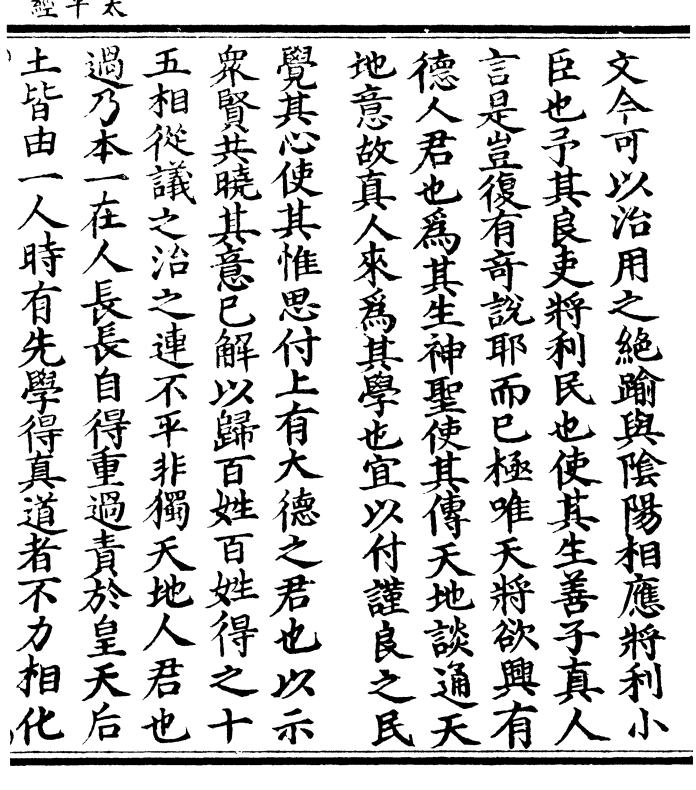 太平經
文今可以治用之絕踰與陰陽相應將利小
臣也予其良吏將利民也使其生善子真人
言是豈復有奇說耶而已極唯天將欲興有
德人君也為其生神聖使其傳天地談通天
地意故真人來為其學也宜以付謹良之民
覺其心使其惟思付上有大德之君也以示
眾賢共曉其意已解以歸百姓百姓得之十
五相從議之治之連不平非獨天地人君也
過乃本一在人長長自得重過責於皇天后
土皆由一人時有先學得真道者不力相化